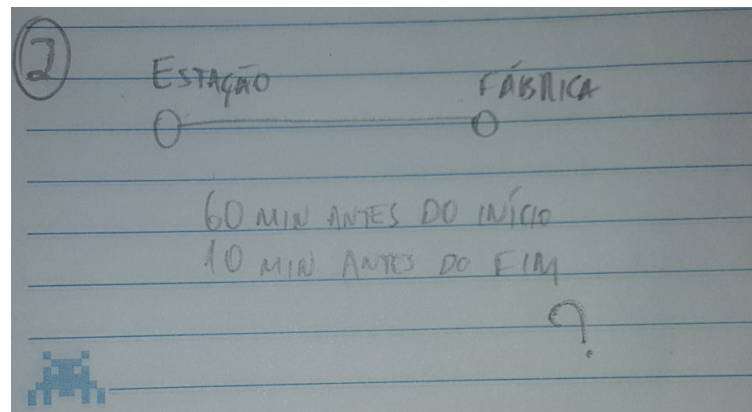 2
ESTAÇÃO FÁBRICA
60 MIN ANTES DO INÍCIO
10 MIN ANTES DO FIM
?